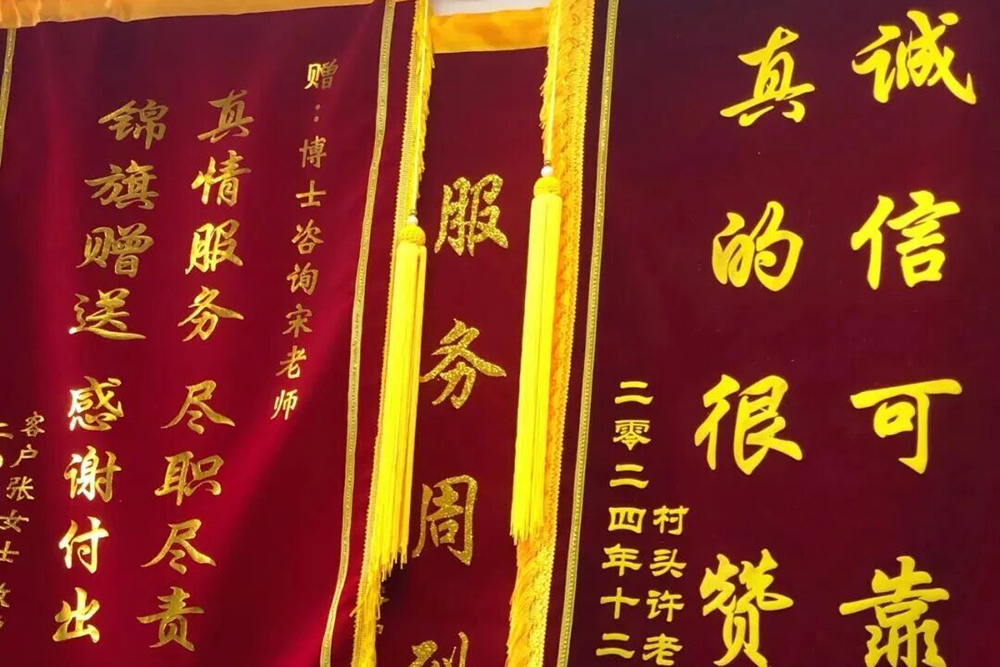 诚信可靠
真的很赞
村头许老
二零二四年十二
服务周到
赠:博士咨询宋老师
真情服务 尽职尽责
锦旗赠送 感谢付出
客户张女士